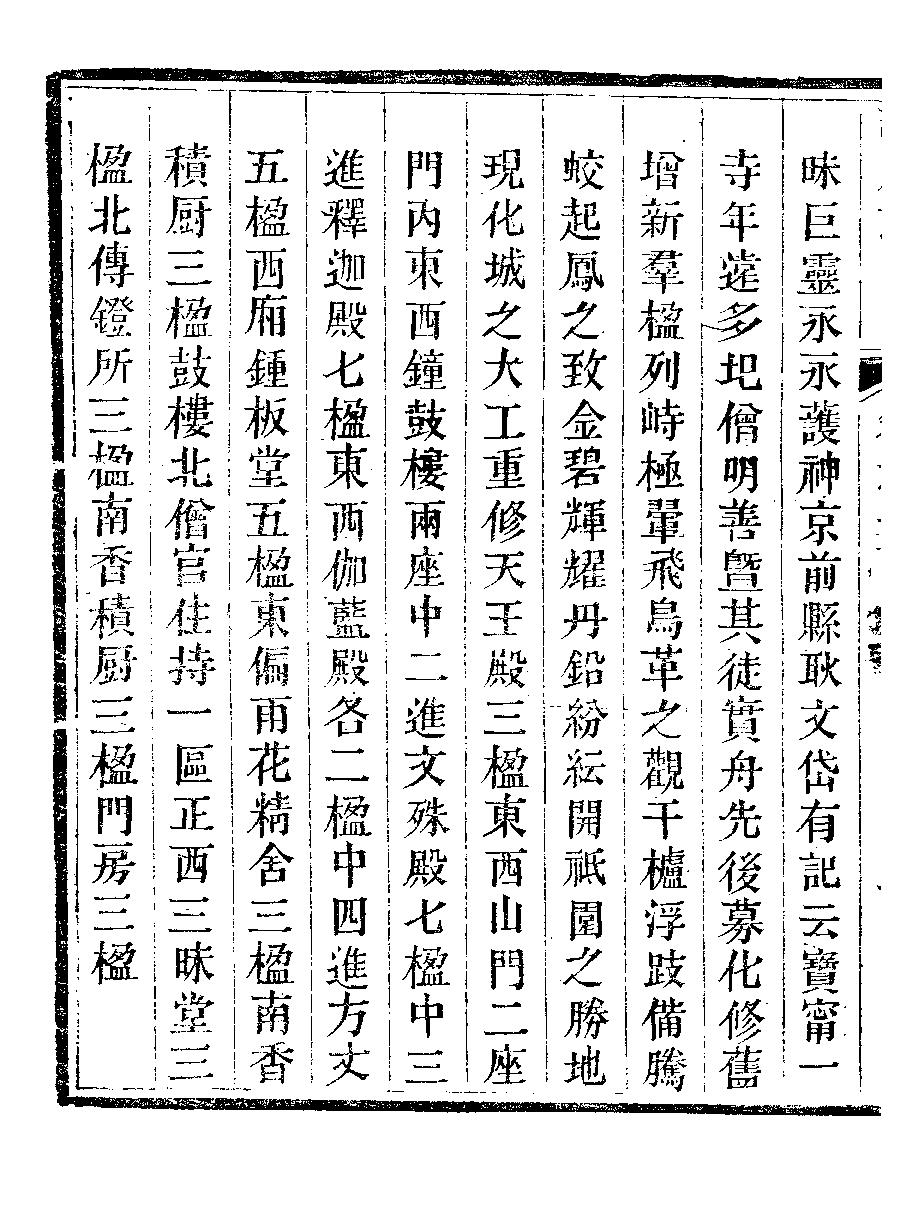 昧巨靈永永護神京前縣耿文岱有記云寶甯一
寺年遠多圯僧明善曁其徒實舟先後募化修舊
增新羣楹列峙極翬飛鳥革之觀千櫨浮跂備騰
蛟起鳳之致金碧輝耀丹鉛紛紜開祗園之勝地
現化城之大工重修天王殿三楹東西山門二座
門內東西鐘鼓樓兩座中二進文殊殿七楹中三
進釋迦殿七楹東西伽藍殿各二楹中四進方丈
五楹西廂鍾板堂五楹東偏雨花精舍三楹南香
積厨三楹鼓樓北僧官住持一區正西三昧堂三
楹北傳鐙所三楹南香積厨三楹門房三楹